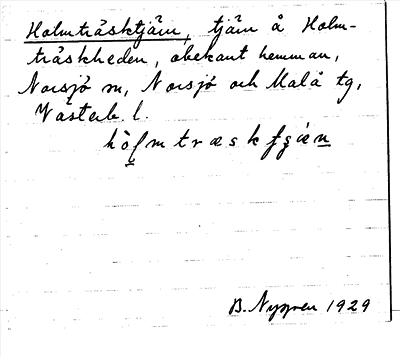 Holmträsktjärn, tjärn å Holm-
träskheden, obekant hemman,
Norsjö sn, Norsjö och Malå tg,
Västerb. l.
B. Nygren 1929